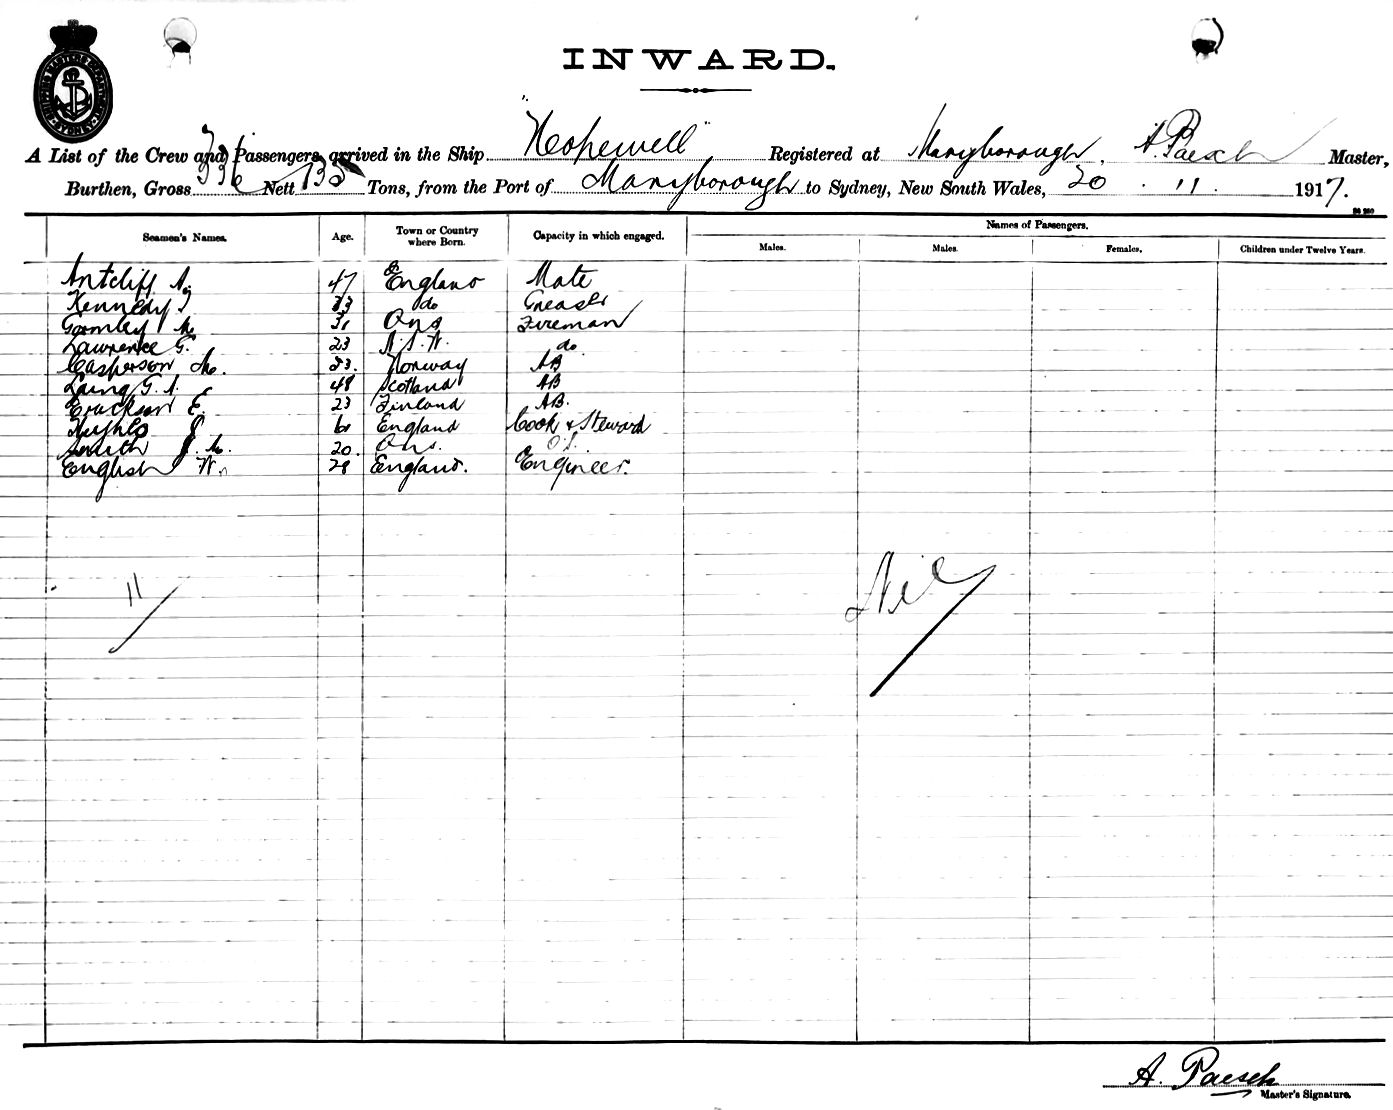 INWARD.
A List of the Crew and Passengers arrived in the Ship "Hopewell" Registered at Maryborough, A. Paesch Master,
Burthen, Gross Nett Tons, from the Port of Maryborough to Sydney, New South Wales, 20 . 11 . 1917.
Seamen's Names. Age. Town or Country where Born. Capacity in which engaged. Names of Passengers.
Males. Males. Females. Children under Twelve Years.
Antcliff A. 47 England Mate
Kennedy J 33 do Greaser
Gormley 31 Fireman
Lawrence G. 23 N.S.W. do
Casperson 23. Norway AB
Laing G. A. 48 Scotland AB
Erackson E. 23 Finland AB.
Hughes J England Cook & Steward
Smith J. 20. O.S.
English W. 28 England. Engineer.
Nil
11
A. Paesch
Master's Signature.